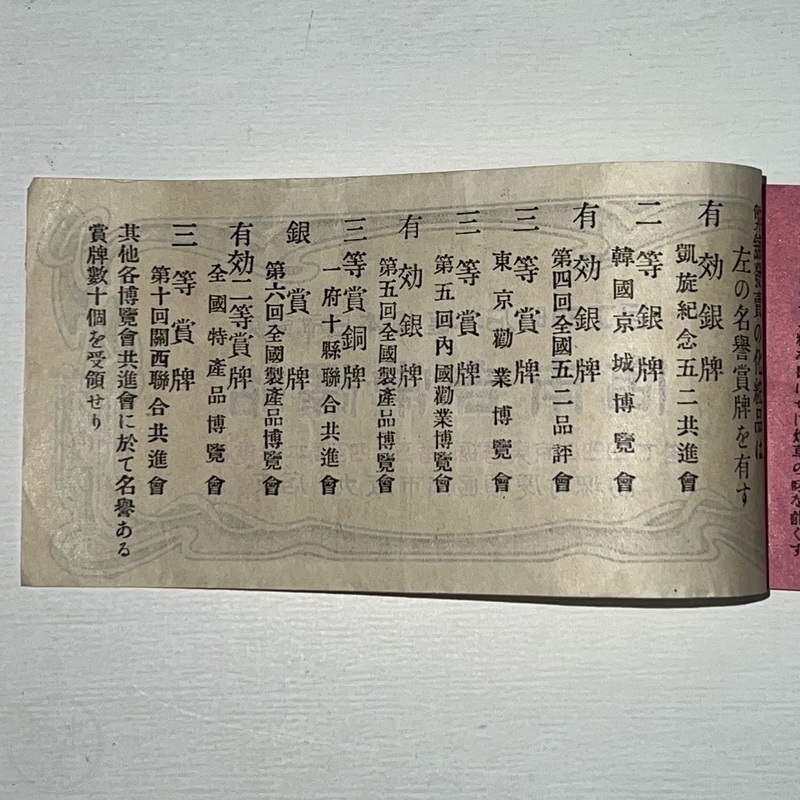 發賣の化粧品は
左の名譽賞牌を有す
有効銀牌
凱旋紀念五二共進會
二等銀牌
韓國京城博覽會
有効銀牌
第四回全國五二品評會
三等賞牌
東京勸業博覽會
三等賞牌
第五回內國勸業博覽會
有効銀牌
第五回全國製產品博覽會
三等賞銅牌
一府十縣聯合共進會
銀賞牌
第六回全國製產品博覽會
有効二等賞牌
全國特產品博覽會
三等賞牌
第十回關西聯合共進會
其他各博覽會共進會に於て名譽ある
賞牌數十個を受領せり